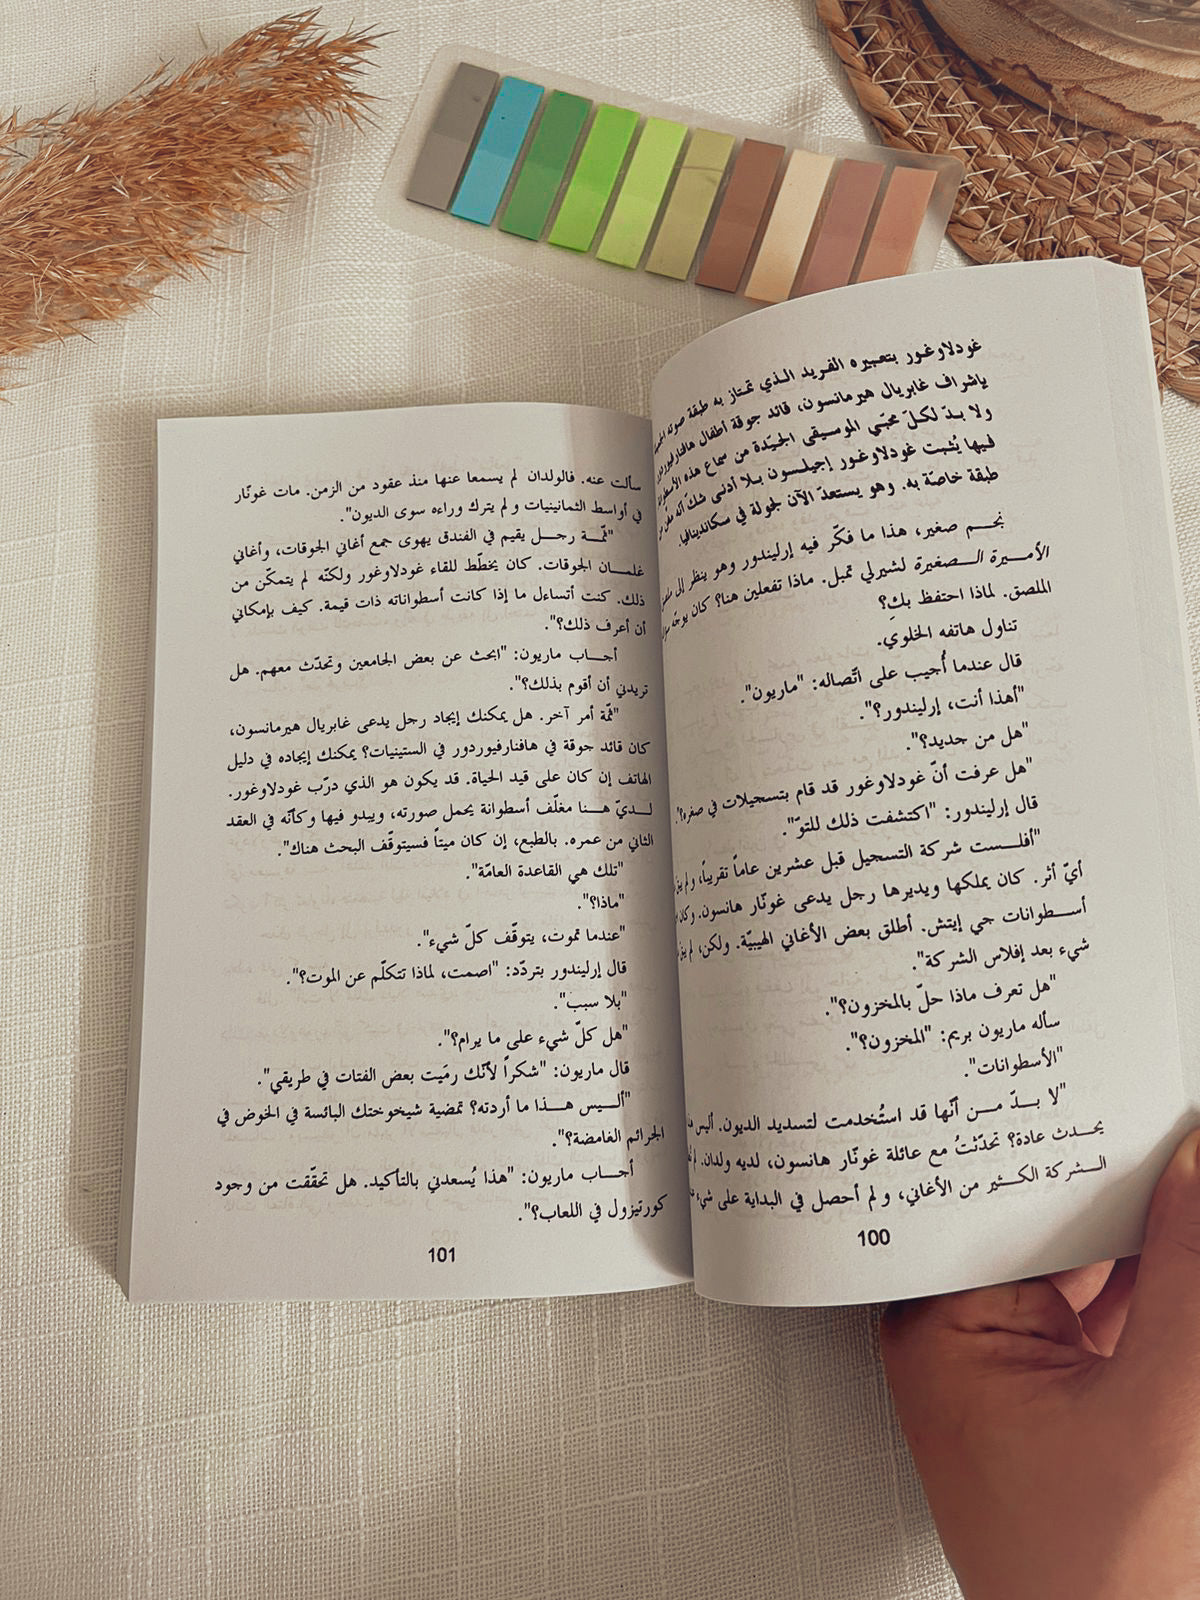 غودلاوغور بتعبيره الفريد الذي تمتاز به طبقة صوته
بإشراف غابريال هيرمانسون، قائد جوقة أطفال هافنارفيوردور
ولا بدّ لكلّ محبّي الموسيقى الجيّدة من سماع هذه الأسطوانة
فيها يُثبت غودلاوغور إجيلسون بلا أدنى شكّ أنّه
طبقة خاصّة به. وهو يستعدّ الآن لجولة في سكاندينافيا.
نجم صغير، هذا ما فكّر فيه إرليندور وهو ينظر إلى
الأميرة الصغيرة لشيرلي تمبل. ماذا تفعلين هنا؟ كان يوجّه
الملصق. لماذا احتفظ بكِ؟
تناول هاتفه الخلوي.
قال عندما أُجيب على اتّصاله: "ماريون".
"أهذا أنت، إرليندور؟".
"هل من جديد؟".
"هل عرفت أنّ غودلاوغور قد قام بتسجيلات في صغره؟".
قال إرليندور: "اكتشفت ذلك للتوّ".
"أفلست شركة التسجيل قبل عشرين عاماً تقريباً، ولم
أيّ أثر. كان يملكها ويديرها رجل يدعى غونّار هانسون. وكان
أسطوانات جي إيتش. أطلق بعض الأغاني الهيبيّة. ولكن، لم
شيء بعد إفلاس الشركة".
"هل تعرف ماذا حلّ بالمخزون؟".
سأله ماريون بريم: "المخزون؟".
"الأسطوانات".
"لا بدّ من أنّها قد استُخدمت لتسديد الديون. أليس
يحدث عادة؟ تحدّثتُ مع عائلة غونّار هانسون، لديه ولدان.
الشركة الكثير من الأغاني، ولم أحصل في البداية على شيء
100
سألت عنه. فالولدان لم يسمعا عنها منذ عقود من الزمن. مات غونّار
في أواسط الثمانينيات ولم يترك وراءه سوى الديون".
"ثمّة رجل يقيم في الفندق يهوى جمع أغاني الجوقات، وأغاني
غلمان الجوقات. كان يخطّط للقاء غودلاوغور ولكنّه لم يتمكّن من
ذلك. كنت أتساءل ما إذا كانت أسطواناته ذات قيمة. كيف بإمكاني
أن أعرف ذلك؟".
أجاب ماريون: "ابحث عن بعض الجامعين وتحدّث معهم. هل
تريدني أن أقوم بذلك؟".
"ثمّة أمر آخر. هل يمكنك إيجاد رجل يدعى غابريال هيرمانسون،
كان قائد جوقة في هافنارفيوردور في الستينيات؟ يمكنك إيجاده في دليل
الهاتف إن كان على قيد الحياة. قد يكون هو الذي درّب غودلاوغور.
لديّ هنا مغلّف أسطوانة يحمل صورته، ويبدو فيها وكأنّه في العقد
الثاني من عمره. بالطبع، إن كان ميتاً فسيتوقّف البحث هناك".
"تلك هي القاعدة العامّة".
"ماذا؟".
"عندما تموت، يتوقّف كلّ شيء".
قال إرليندور بتردّد: "اصمت، لماذا تتكلّم عن الموت؟".
"بلا سبب".
"هل كلّ شيء على ما يرام؟".
قال ماريون: "شكراً لأنّك رمَيت بعض الفتات في طريقي".
"أليس هذا ما أردته؟ تمضية شيخوختك البائسة في الخوض في
الجرائم الغامضة؟".
أجاب ماريون: "هذا يُسعدني بالتأكيد. هل تحقّقت من وجود
كورتيزول في اللعاب؟".
101